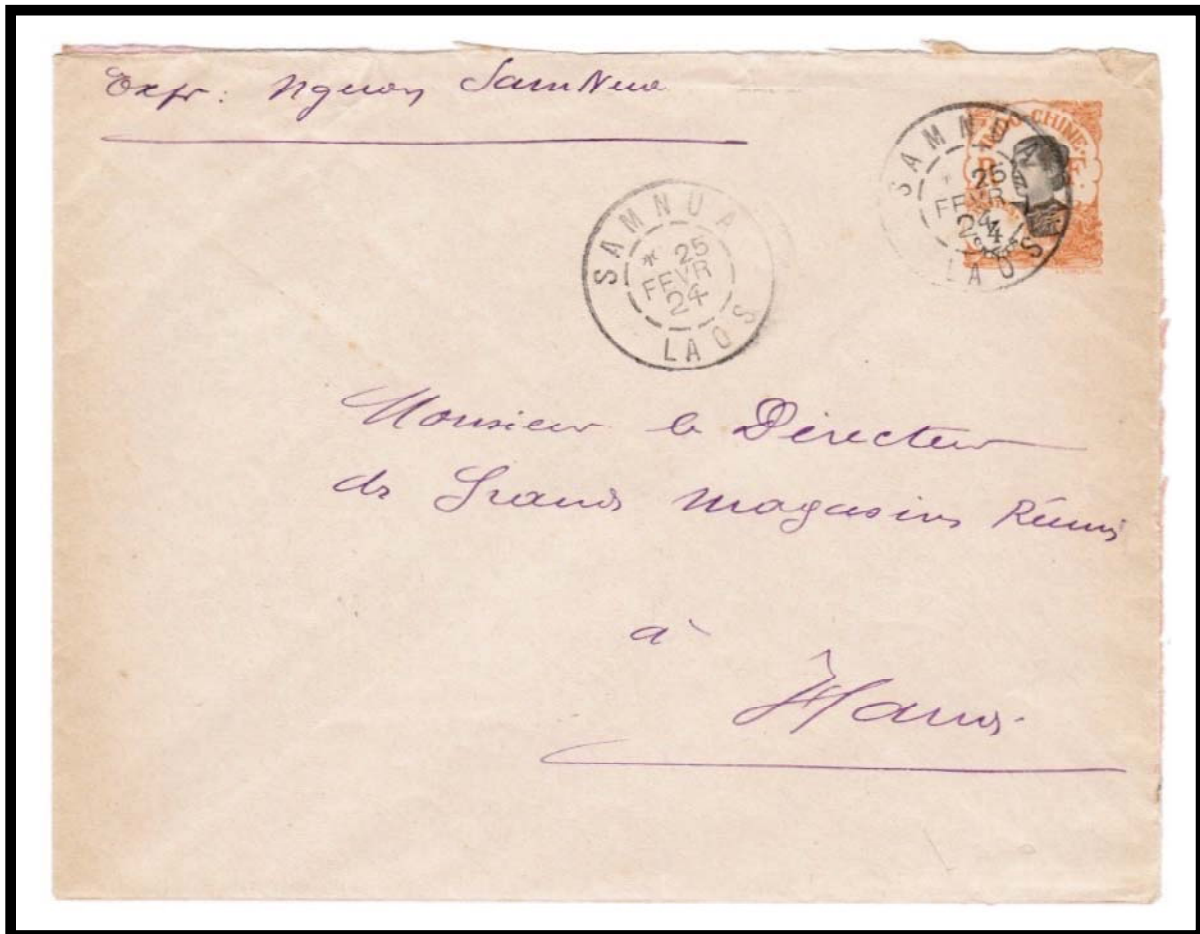 Expr: Nguen SamNeua
INDO-CHINE
RF
4
SAMNUA
* 25
FEVR
24
LAOS
SAMNUA
* 25
FEVR
24
LAOS
Monsieur le Directeur
des Grands Magasins Réunis
à
Hanoi